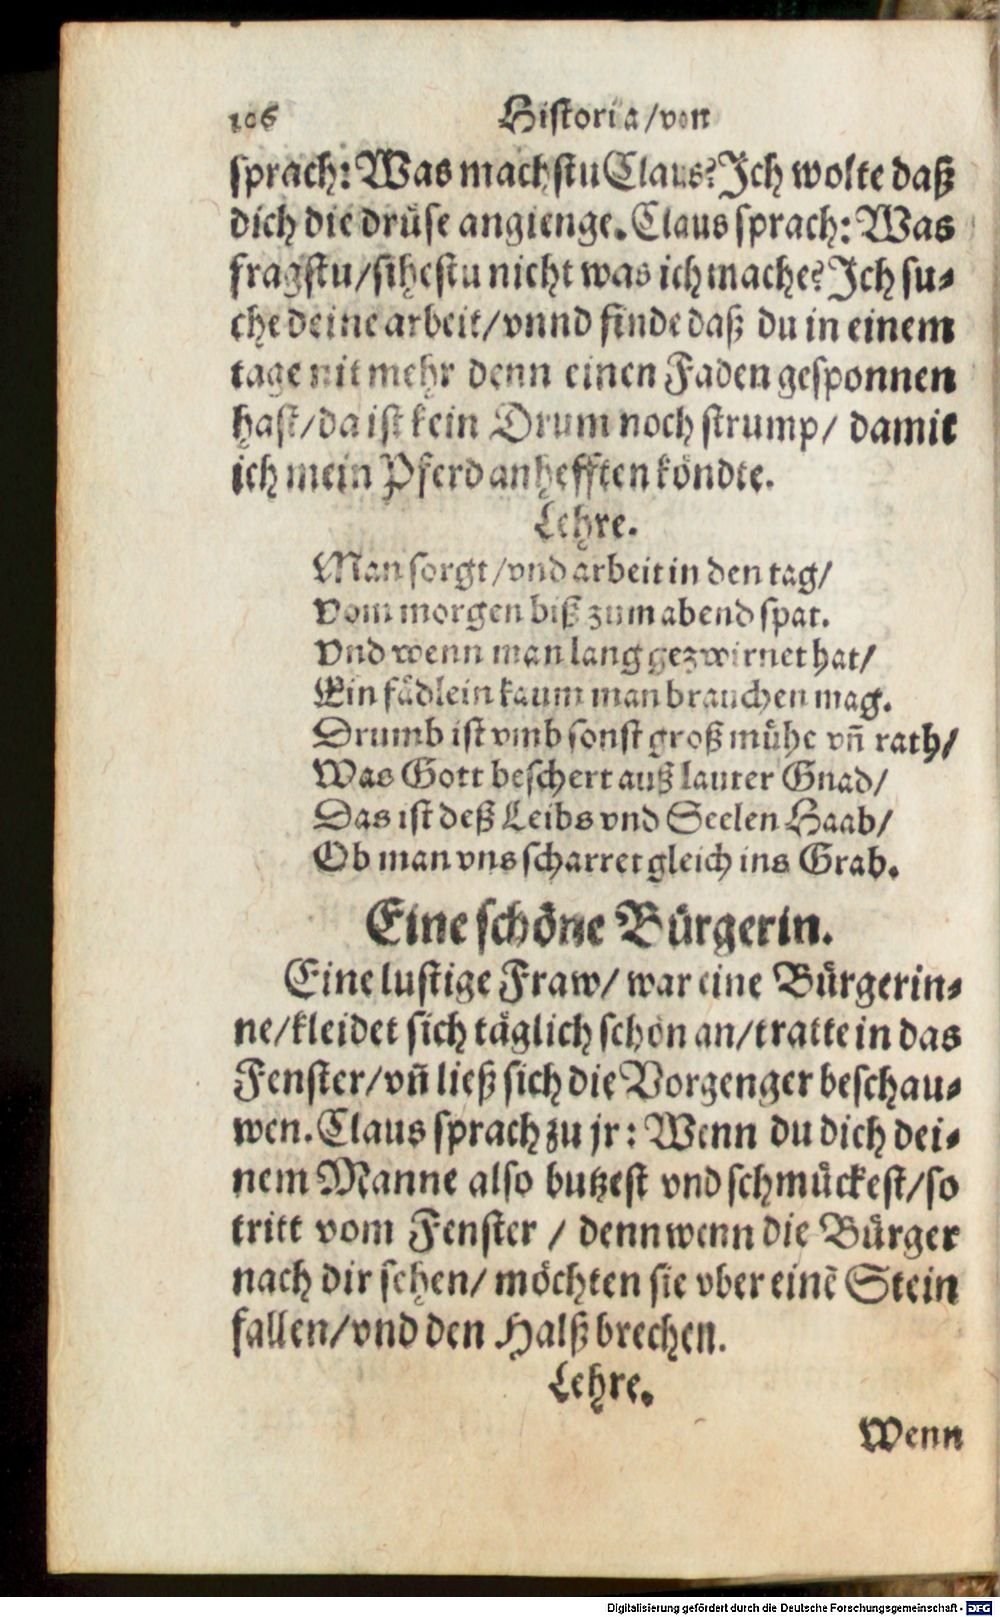 106 Historia/von
sprach: Was machstu Claus? Ich wolte daß
dich die drüse angienge. Claus sprach: Was
fragstu/sihestu nicht was ich mache? Ich su-
che deine arbeit/vnnd finde daß du in einem
tage nit mehr denn einen Faden gesponnen
hast/da ist kein Drum noch strump/ damit
ich mein Pferd anhefften köndte.
Lehre.
Man sorgt/vnd arbeit in den tag/
Vom morgen biß zum abend spat.
Vnd wenn man lang gezwirnet hat/
Ein fädlein kaum man brauchen mag.
Drumb ist vmb sonst groß mühe vñ rath/
Was Gott beschert auß lauter Gnad/
Das ist deß Leibs vnd Seelen Haab/
Ob man vns scharret gleich ins Grab.
Eine schöne Bürgerin.
Eine lustige Fraw/ war eine Bürgerin-
ne/kleidet sich täglich schön an/tratte in das
Fenster/vñ ließ sich die Vorgenger beschau-
wen. Claus sprach zu jr: Wenn du dich dei-
nem Manne also butzest vnd schmückest/so
tritt vom Fenster / denn wenn die Bürger
nach dir sehen/ möchten sie vber einē Stein
fallen/vnd den Halß brechen.
Lehre.
Wenn
Digitalisierung gefördert durch die Deutsche Forschungsgemeinschaft - DFG